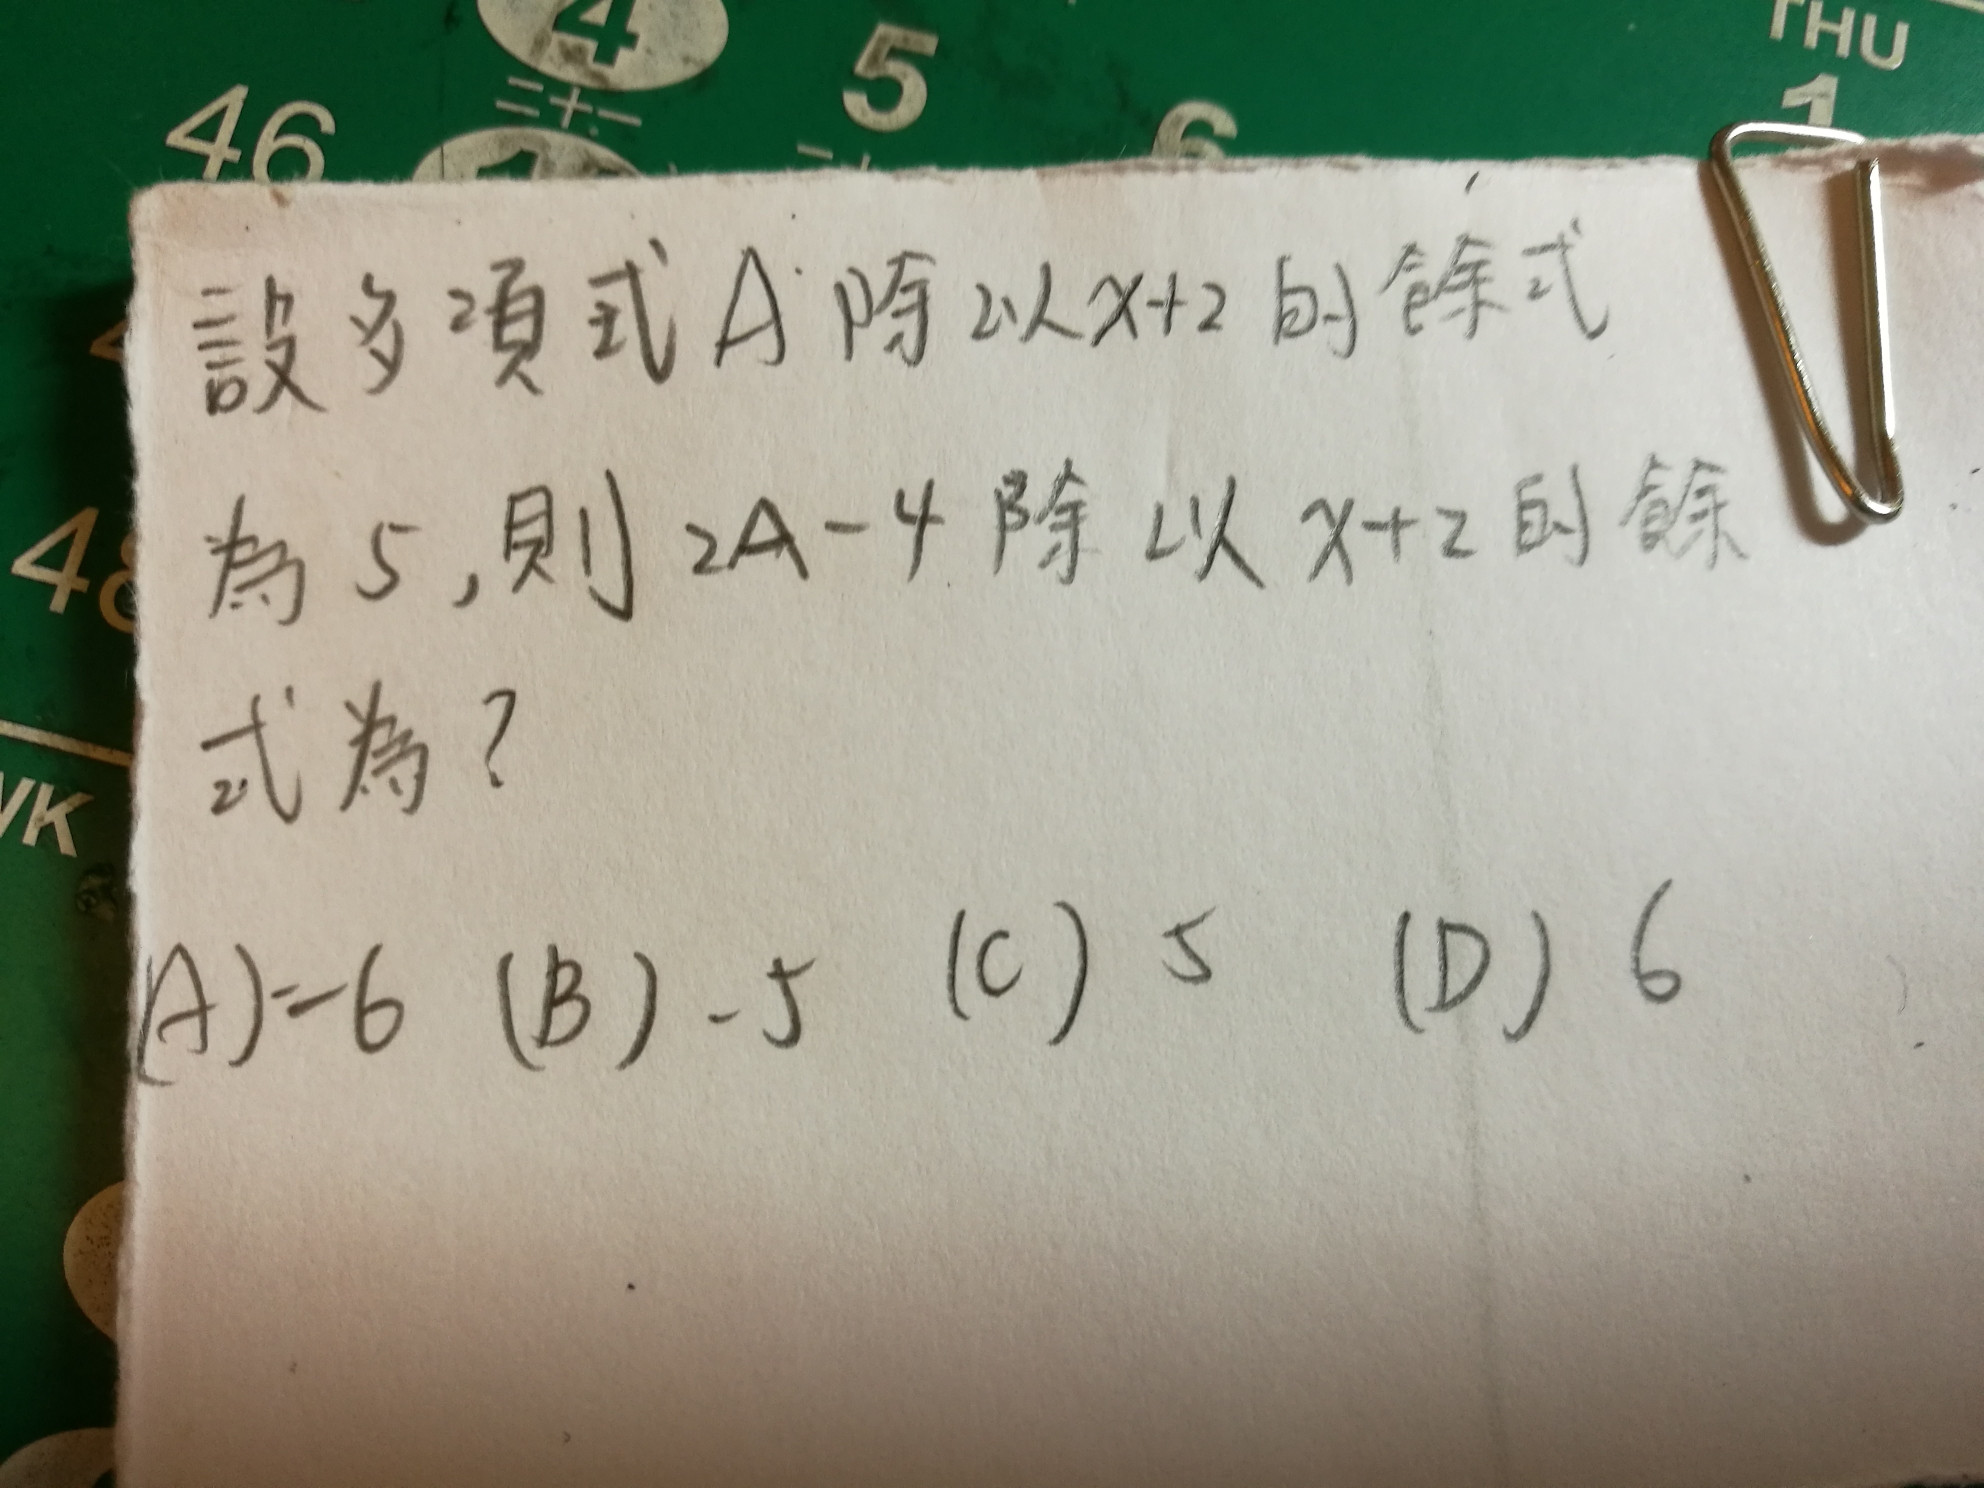 4
46
=+-
5
6
THU
1
設多項式A除以x+2的餘式
為5,則2A-4除以x+2的餘
48
式為?
WK
(A)=-6 (B)-5 (C) 5 (D) 6